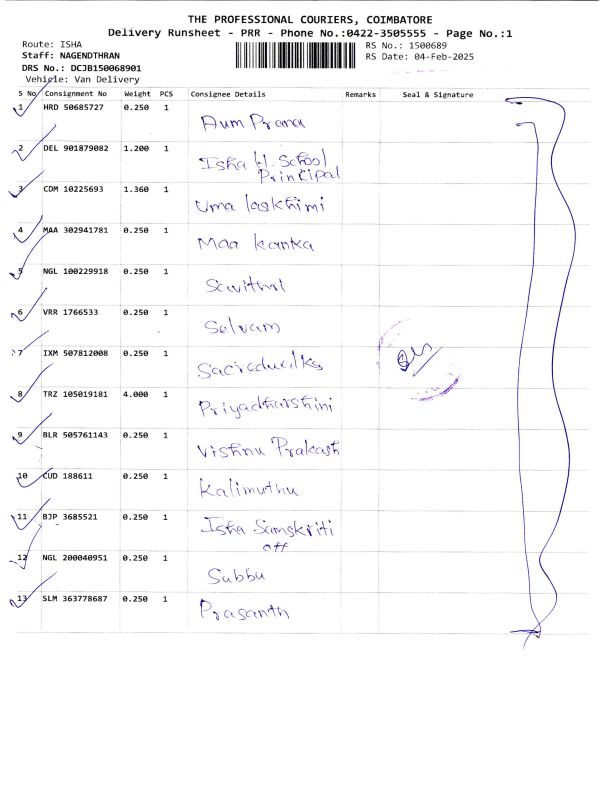 THE PROFESSIONAL COURIERS, COIMBATORE
Delivery Runsheet - PRR - Phone No.:0422-3505555 - Page No.:1
Route: ISHA
Staff: NAGENDTHRAN
DRS No.: DCJB150068901
Vehicle: Van Delivery
RS No.: 1500689
RS Date: 04-Feb-2025
S No Consignment No Weight PCS Consignee Details Remarks Seal & Signature
1 HRD 50685727 0.250 1
Aum Prana
2 DEL 901879082 1.200 1
Isha H. School
Principal
3 CDM 10225693 1.360 1
Uma lagkhimi
4 MAA 302941781 0.250 1
Maa kanka
5 NGL 100229918 0.250 1
Savithri
6 VRR 1766533 0.250 1
Selvam
7 IXM 507812008 0.250 1
8 TRZ 105019181 4.000 1
Priyadharshini
9 BLR 505761143 0.250 1
Vishnu Prakash
10 CUD 188611 0.250 1
Kalimuthu
11 BJP 3685521 0.250 1
Isha Samskriti
off
12 NGL 200040951 0.250 1
Subbu
13 SLM 363778687 0.250 1
Prasanth